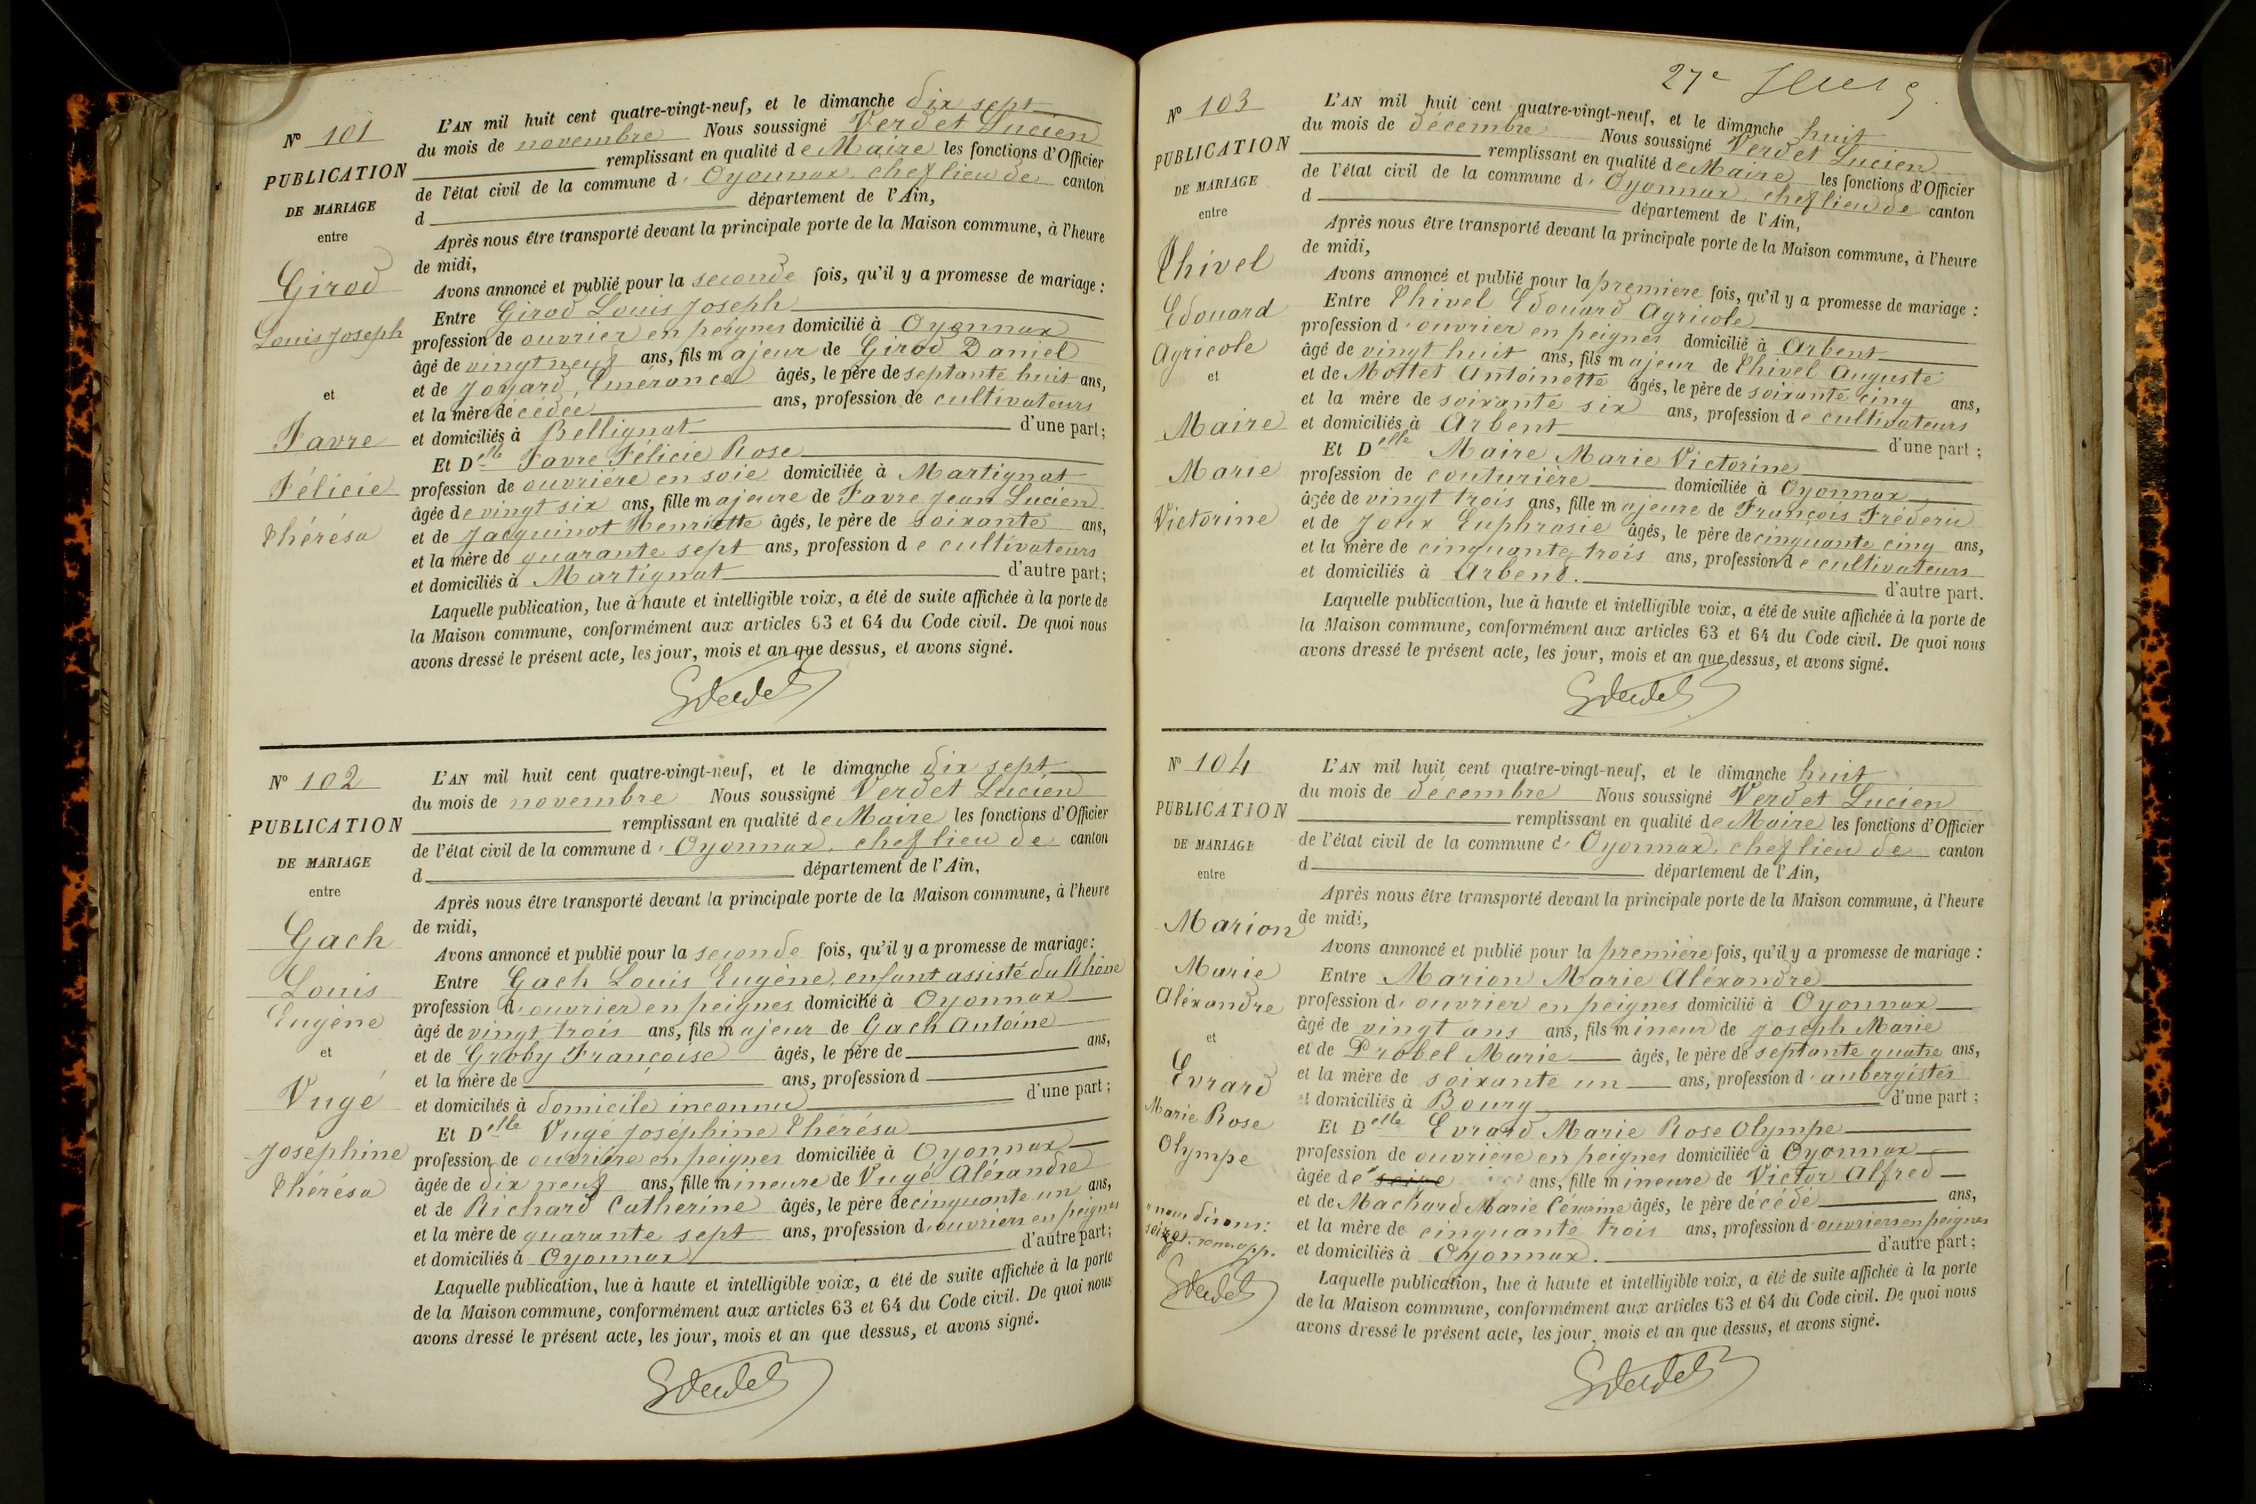 N° 101
PUBLICATION
DE MARIAGE
entre
Girod
Louis Joseph
et
Favre
Félicie
Thérésa
L'AN mil huit cent quatre-vingt-neuf, et le dimanche dix sept
du mois de novembre Nous soussigné Verdet Lucien
remplissant en qualité de Maire les fonctions d'Officier
de l'état civil de la commune d' Oyonnax, chef lieu de canton
d département de l'Ain,
Après nous être transporté devant la principale porte de la Maison commune, à l'heure
de midi,
Avons annoncé et publié pour la seconde fois, qu'il y a promesse de mariage :
Entre Girod Louis Joseph
profession de ouvrier en peignes domicilié à Oyonnax
âgé de vingt neuf ans, fils majeur de Girod Daniel
et de Jouard Emérance âgés, le père de septante huit ans,
et la mère décédée ans, profession de cultivateurs
et domiciliés à Bellignat d'une part ;
Et Delle Favre Félicie Rose
profession de ouvrière en soie domiciliée à Martignat
âgée de vingt six ans, fille majeure de Favre Jean Lucien
et de Jacquinot Henriette âgés, le père de soixante ans,
et la mère de quarante sept ans, profession de cultivateurs
et domiciliés à Martignat d'autre part ;
Laquelle publication, lue à haute et intelligible voix, a été de suite affichée à la porte de
la Maison commune, conformément aux articles 63 et 64 du Code civil. De quoi nous
avons dressé le présent acte, les jour, mois et an que dessus, et avons signé.
N° 102
PUBLICATION
DE MARIAGE
entre
Gach
Louis
Eugène
et
Vugé
Joséphine
Thérésa
L'AN mil huit cent quatre-vingt-neuf, et le dimanche dix sept
du mois de novembre Nous soussigné Verdet Lucien
remplissant en qualité de Maire les fonctions d'Officier
de l'état civil de la commune d' Oyonnax, chef lieu de canton
d département de l'Ain,
Après nous être transporté devant la principale porte de la Maison commune, à l'heure
de midi,
Avons annoncé et publié pour la seconde fois, qu'il y a promesse de mariage :
Entre Gach Louis Eugène, enfant assisté du Rhône
profession d'ouvrier en peignes domicilié à Oyonnax
âgé de vingt trois ans, fils majeur de Gach Antoine
et de Groby Françoise âgés, le père de ans,
et la mère de ans, profession d
et domiciliés à domicile inconnu d'une part ;
Et Delle Vugé Joséphine Thérésa
profession de ouvrière en peignes domiciliée à Oyonnax
âgée de dix neuf ans, fille mineure de Vugé Aléxandre
et de Richard Catherine âgés, le père de cinquante un ans,
et la mère de quarante sept ans, profession d'ouvriers en peignes
et domiciliés à Oyonnax d'autre part ;
Laquelle publication, lue à haute et intelligible voix, a été de suite affichée à la porte
de la Maison commune, conformément aux articles 63 et 64 du Code civil. De quoi nous
avons dressé le présent acte, les jour, mois et an que dessus, et avons signé.
27e
N° 103
PUBLICATION
DE MARIAGE
entre
Thivel
Edouard
Agricole
et
Maire
Marie
Victorine
L'AN mil huit cent quatre-vingt-neuf, et le dimanche huit
du mois de décembre Nous soussigné Verdet Lucien
remplissant en qualité de Maire les fonctions d'Officier
de l'état civil de la commune d' Oyonnax, chef lieu de canton
d département de l'Ain,
Après nous être transporté devant la principale porte de la Maison commune, à l'heure
de midi,
Avons annoncé et publié pour la première fois, qu'il y a promesse de mariage :
Entre Thivel Edouard Agricole
profession d'ouvrier en peignes domicilié à Arbent
âgé de vingt huit ans, fils majeur de Thivel Auguste
et de Mottet Antoinette âgés, le père de soixante cinq ans,
et la mère de soixante six ans, profession de cultivateurs
et domiciliés à Arbent d'une part ;
Et Delle Maire Marie Victorine
profession de couturière domiciliée à Oyonnax
âgée de vingt trois ans, fille majeure de François Fréderic
et de Joux Euphrasie âgés, le père de cinquante cinq ans,
et la mère de cinquante trois ans, profession de cultivateurs
et domiciliés à Arbent. d'autre part.
Laquelle publication, lue à haute et intelligible voix, a été de suite affichée à la porte de
la Maison commune, conformément aux articles 63 et 64 du Code civil. De quoi nous
avons dressé le présent acte, les jour, mois et an que dessus, et avons signé.
N° 104
PUBLICATION
DE MARIAGE
entre
Marion
Marie
Aléxandre
et
Evrard
Marie Rose
Olympe
nous disons :
seize
L'AN mil huit cent quatre-vingt-neuf, et le dimanche huit
du mois de décembre Nous soussigné Verdet Lucien
remplissant en qualité de Maire les fonctions d'Officier
de l'état civil de la commune d' Oyonnax, chef lieu de canton
d département de l'Ain,
Après nous être transporté devant la principale porte de la Maison commune, à l'heure
de midi,
Avons annoncé et publié pour la première fois, qu'il y a promesse de mariage :
Entre Marion Marie Aléxandre
profession d'ouvrier en peignes domicilié à Oyonnax
âgé de vingt ans ans, fils mineur de Joseph Marie
et de Probel Marie âgés, le père de septante quatre ans,
et la mère de soixante un ans, profession d'aubergistes
et domiciliés à Bourg d'une part ;
Et Delle Evrard Marie Rose Olympe
profession de ouvrière en peignes domiciliée à Oyonnax
âgée de ans, fille mineure de Victor Alfred
et de Machard Marie Césarine âgés, le père décédé ans,
et la mère de cinquante trois ans, profession d'ouvriers en peignes
et domiciliés à Oyonnax. d'autre part ;
Laquelle publication, lue à haute et intelligible voix, a été de suite affichée à la porte
de la Maison commune, conformément aux articles 63 et 64 du Code civil. De quoi nous
avons dressé le présent acte, les jour, mois et an que dessus, et avons signé.